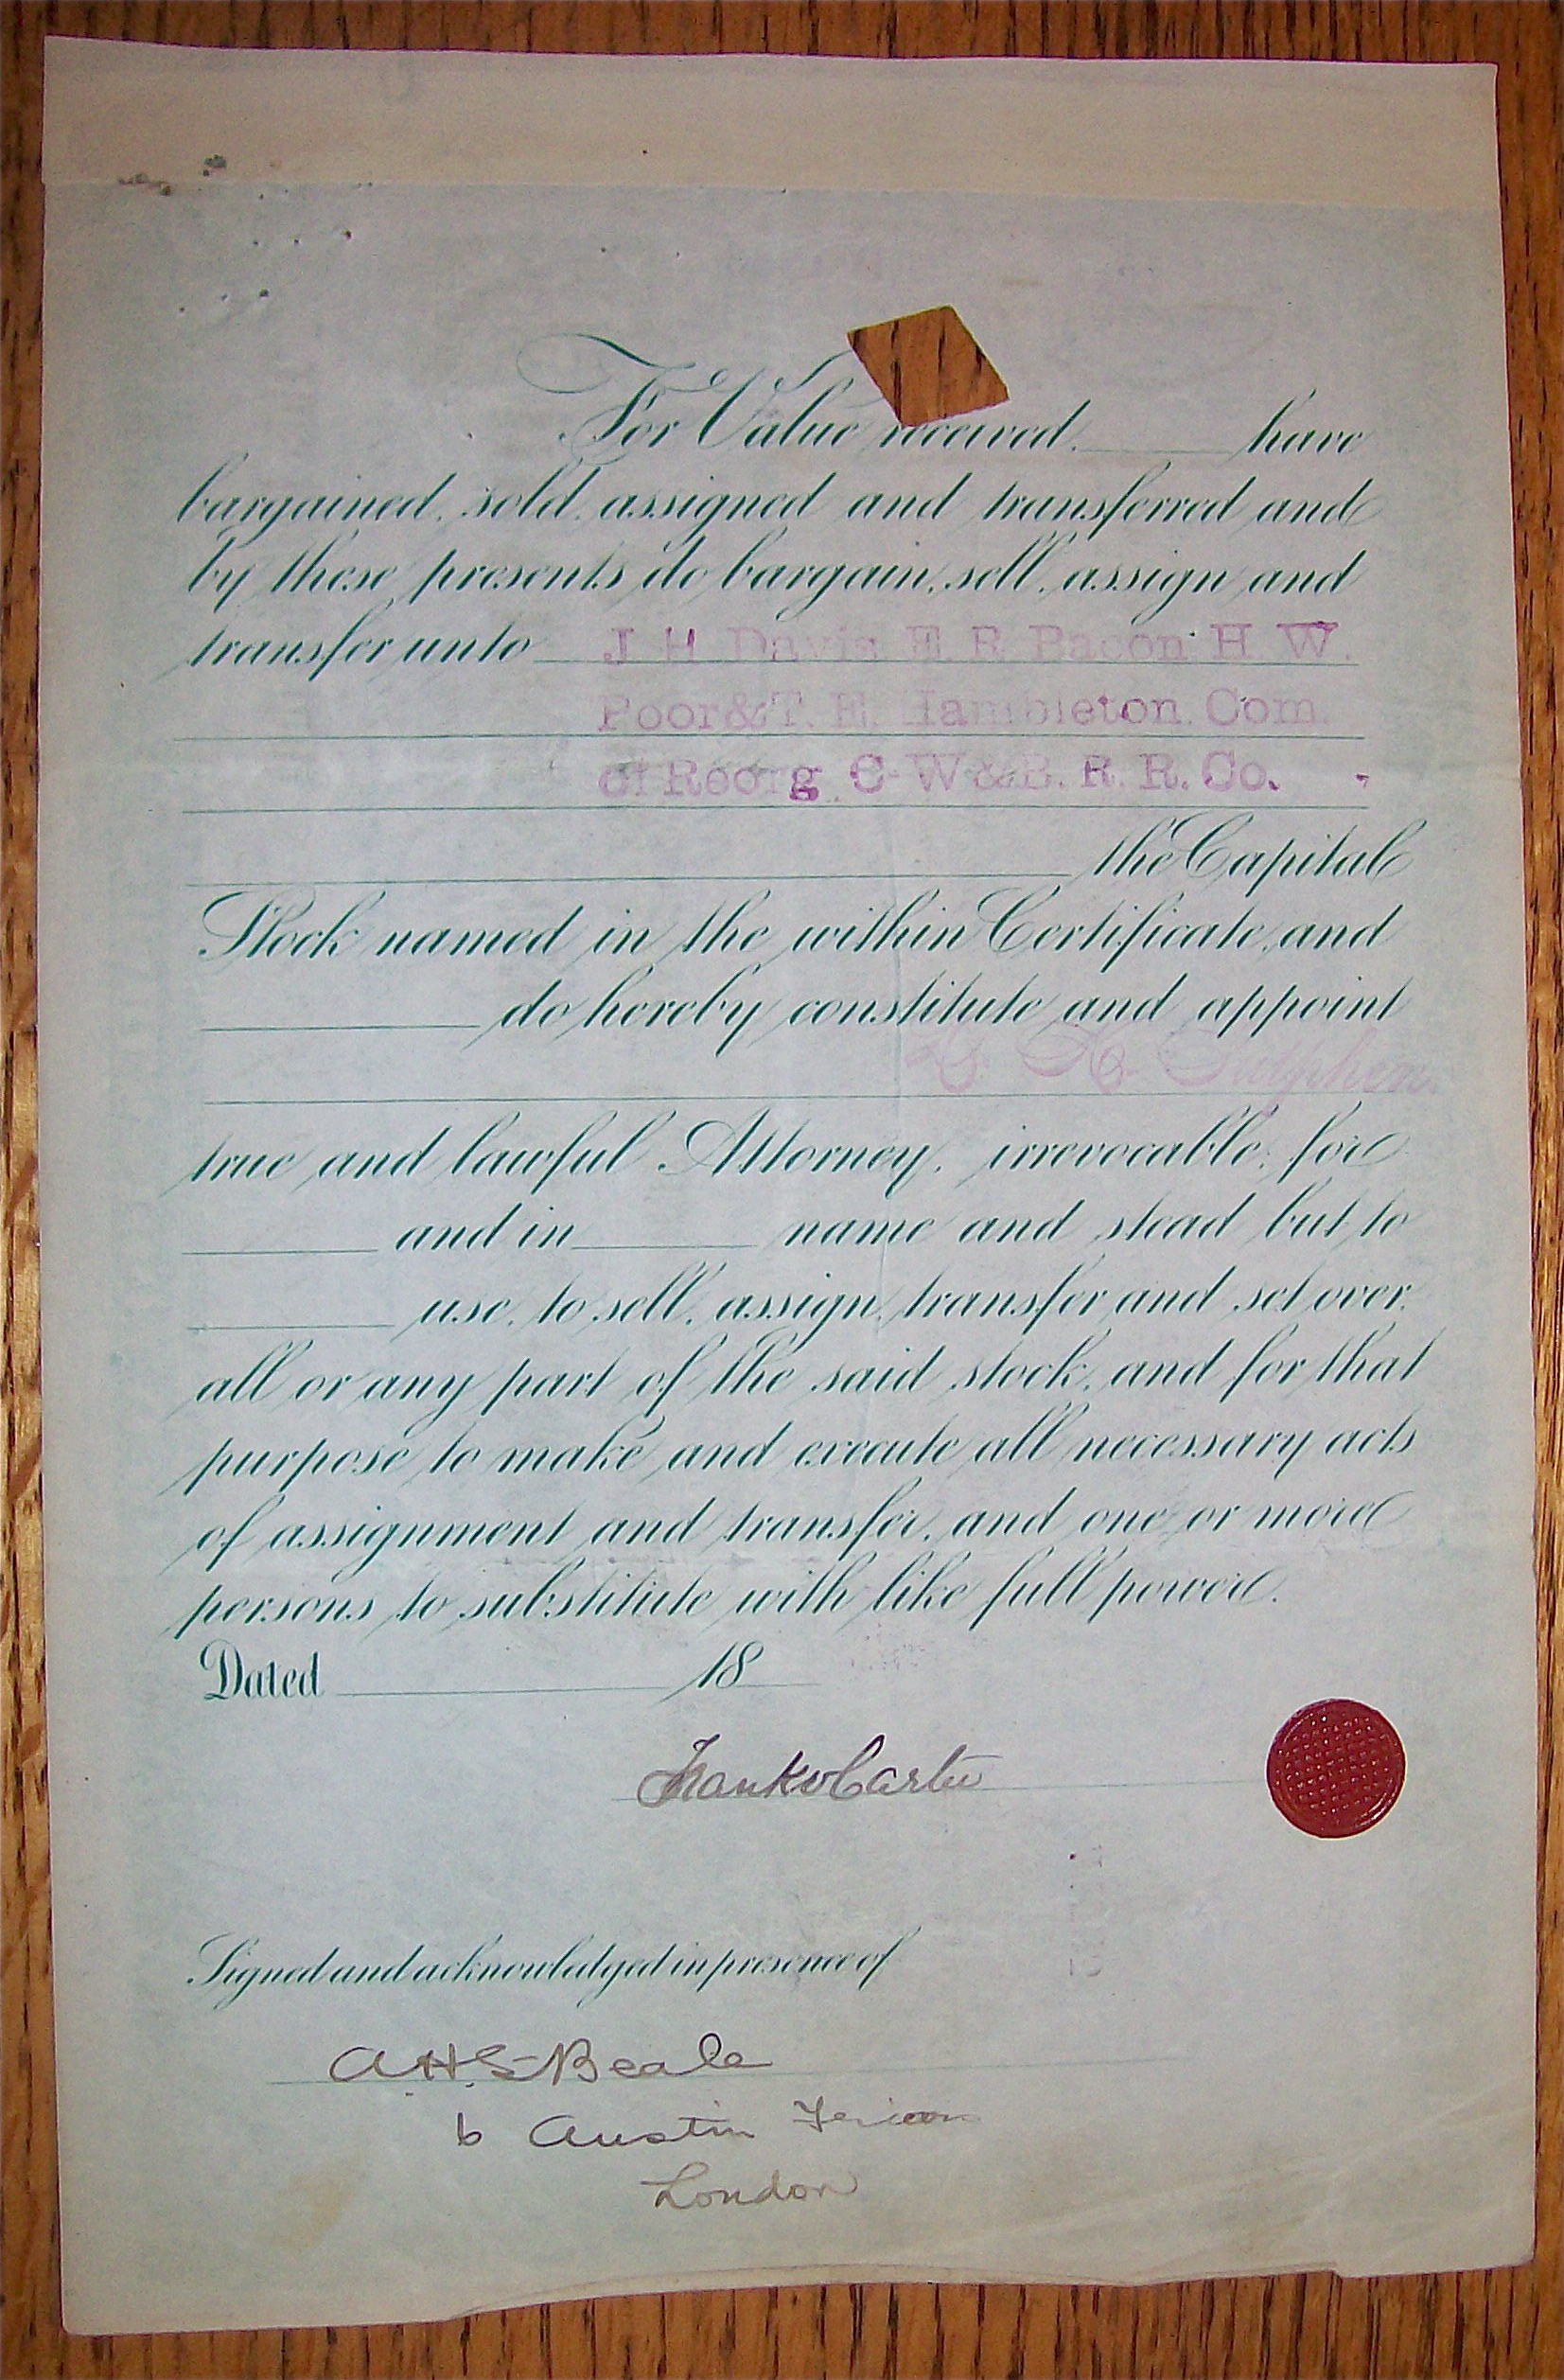 For Value received. have
bargained, sold, assigned and transferred and
by these presents do bargain, sell, assign and
transfer unto J. H. Davis E. R. Bacon H. W.
Poor & T. E. Hambleton. Com.
of Reorg. C. W & B. R. R. Co.
the Capital
Stock named in the within Certificate, and
do hereby constitute and appoint
true and lawful Attorney, irrevocable, for
and in name and stead but to
use, to sell, assign, transfer and set over,
all or any part of the said stock, and for that
purpose to make and execute all necessary acts
of assignment and transfer, and one or more
persons to substitute with like full power.
Dated 18
Signed and acknowledged in presence of
A.H.S. Beale
6 Austin
London